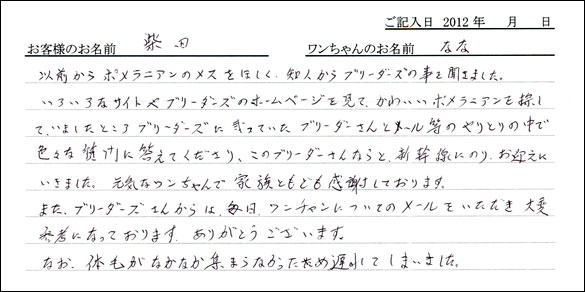 ご記入日 2012 年 月 日
お客様のお名前 柴田 ワンちゃんのお名前 なな
以前からポメラニアンのメスをほしく、知人からブリーダーズの事を聞きました。
いろいろなサイトやブリーダーズのホームページを見て、かわいいポメラニアンを探し
て、いましたところブリーダーズに載っていたブリーダーさんとメール等のやりとりの中で
色々な質問に答えてくださり、このブリーダーさんならと、新幹線にのり、お迎えに
いきました。元気なワンちゃんで家族ともども感謝しております。
また、ブリーダーズさんからは、毎日、ワンチャンについてのメールをいただき大変
参考になっております。ありがとうございます。
なお、体毛がなかなか集まらなかったため遅れてしまいました。